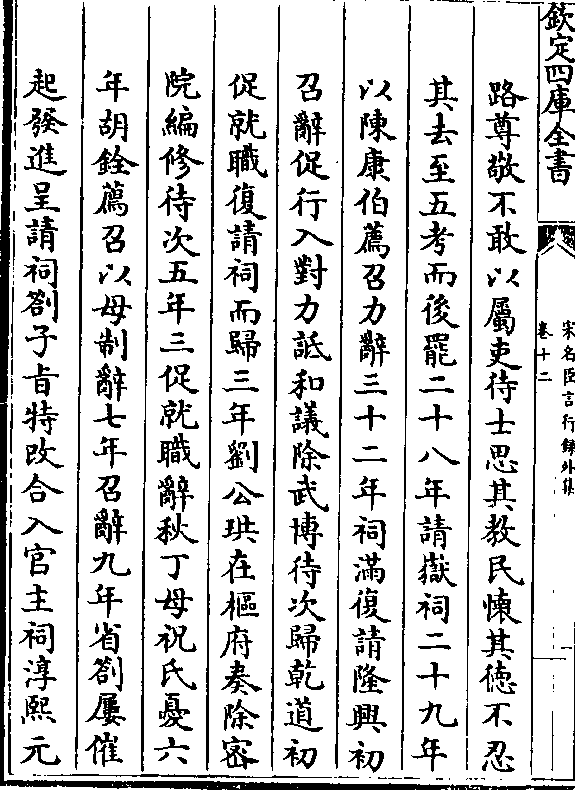 欽定四庫全書
宋名臣言行錄外集
卷十二
一
路尊敬不敢以屬吏待士思其教民懷其德不忍
其去至五考而後罷二十八年請嶽祠二十九年
以陳康伯薦召力辭三十二年祠滿復請隆興初
召辭促行入對力詆和議除武博待次歸乾道初
促就職復請祠而歸三年劉公珙在樞府奏除密
院編修待次五年三促就職辭秋丁母祝氏憂六
年胡銓薦召以母制辭七年召辭九年省劄屢催
起發進呈請祠劄子㫖特改合入官主祠淳熙元